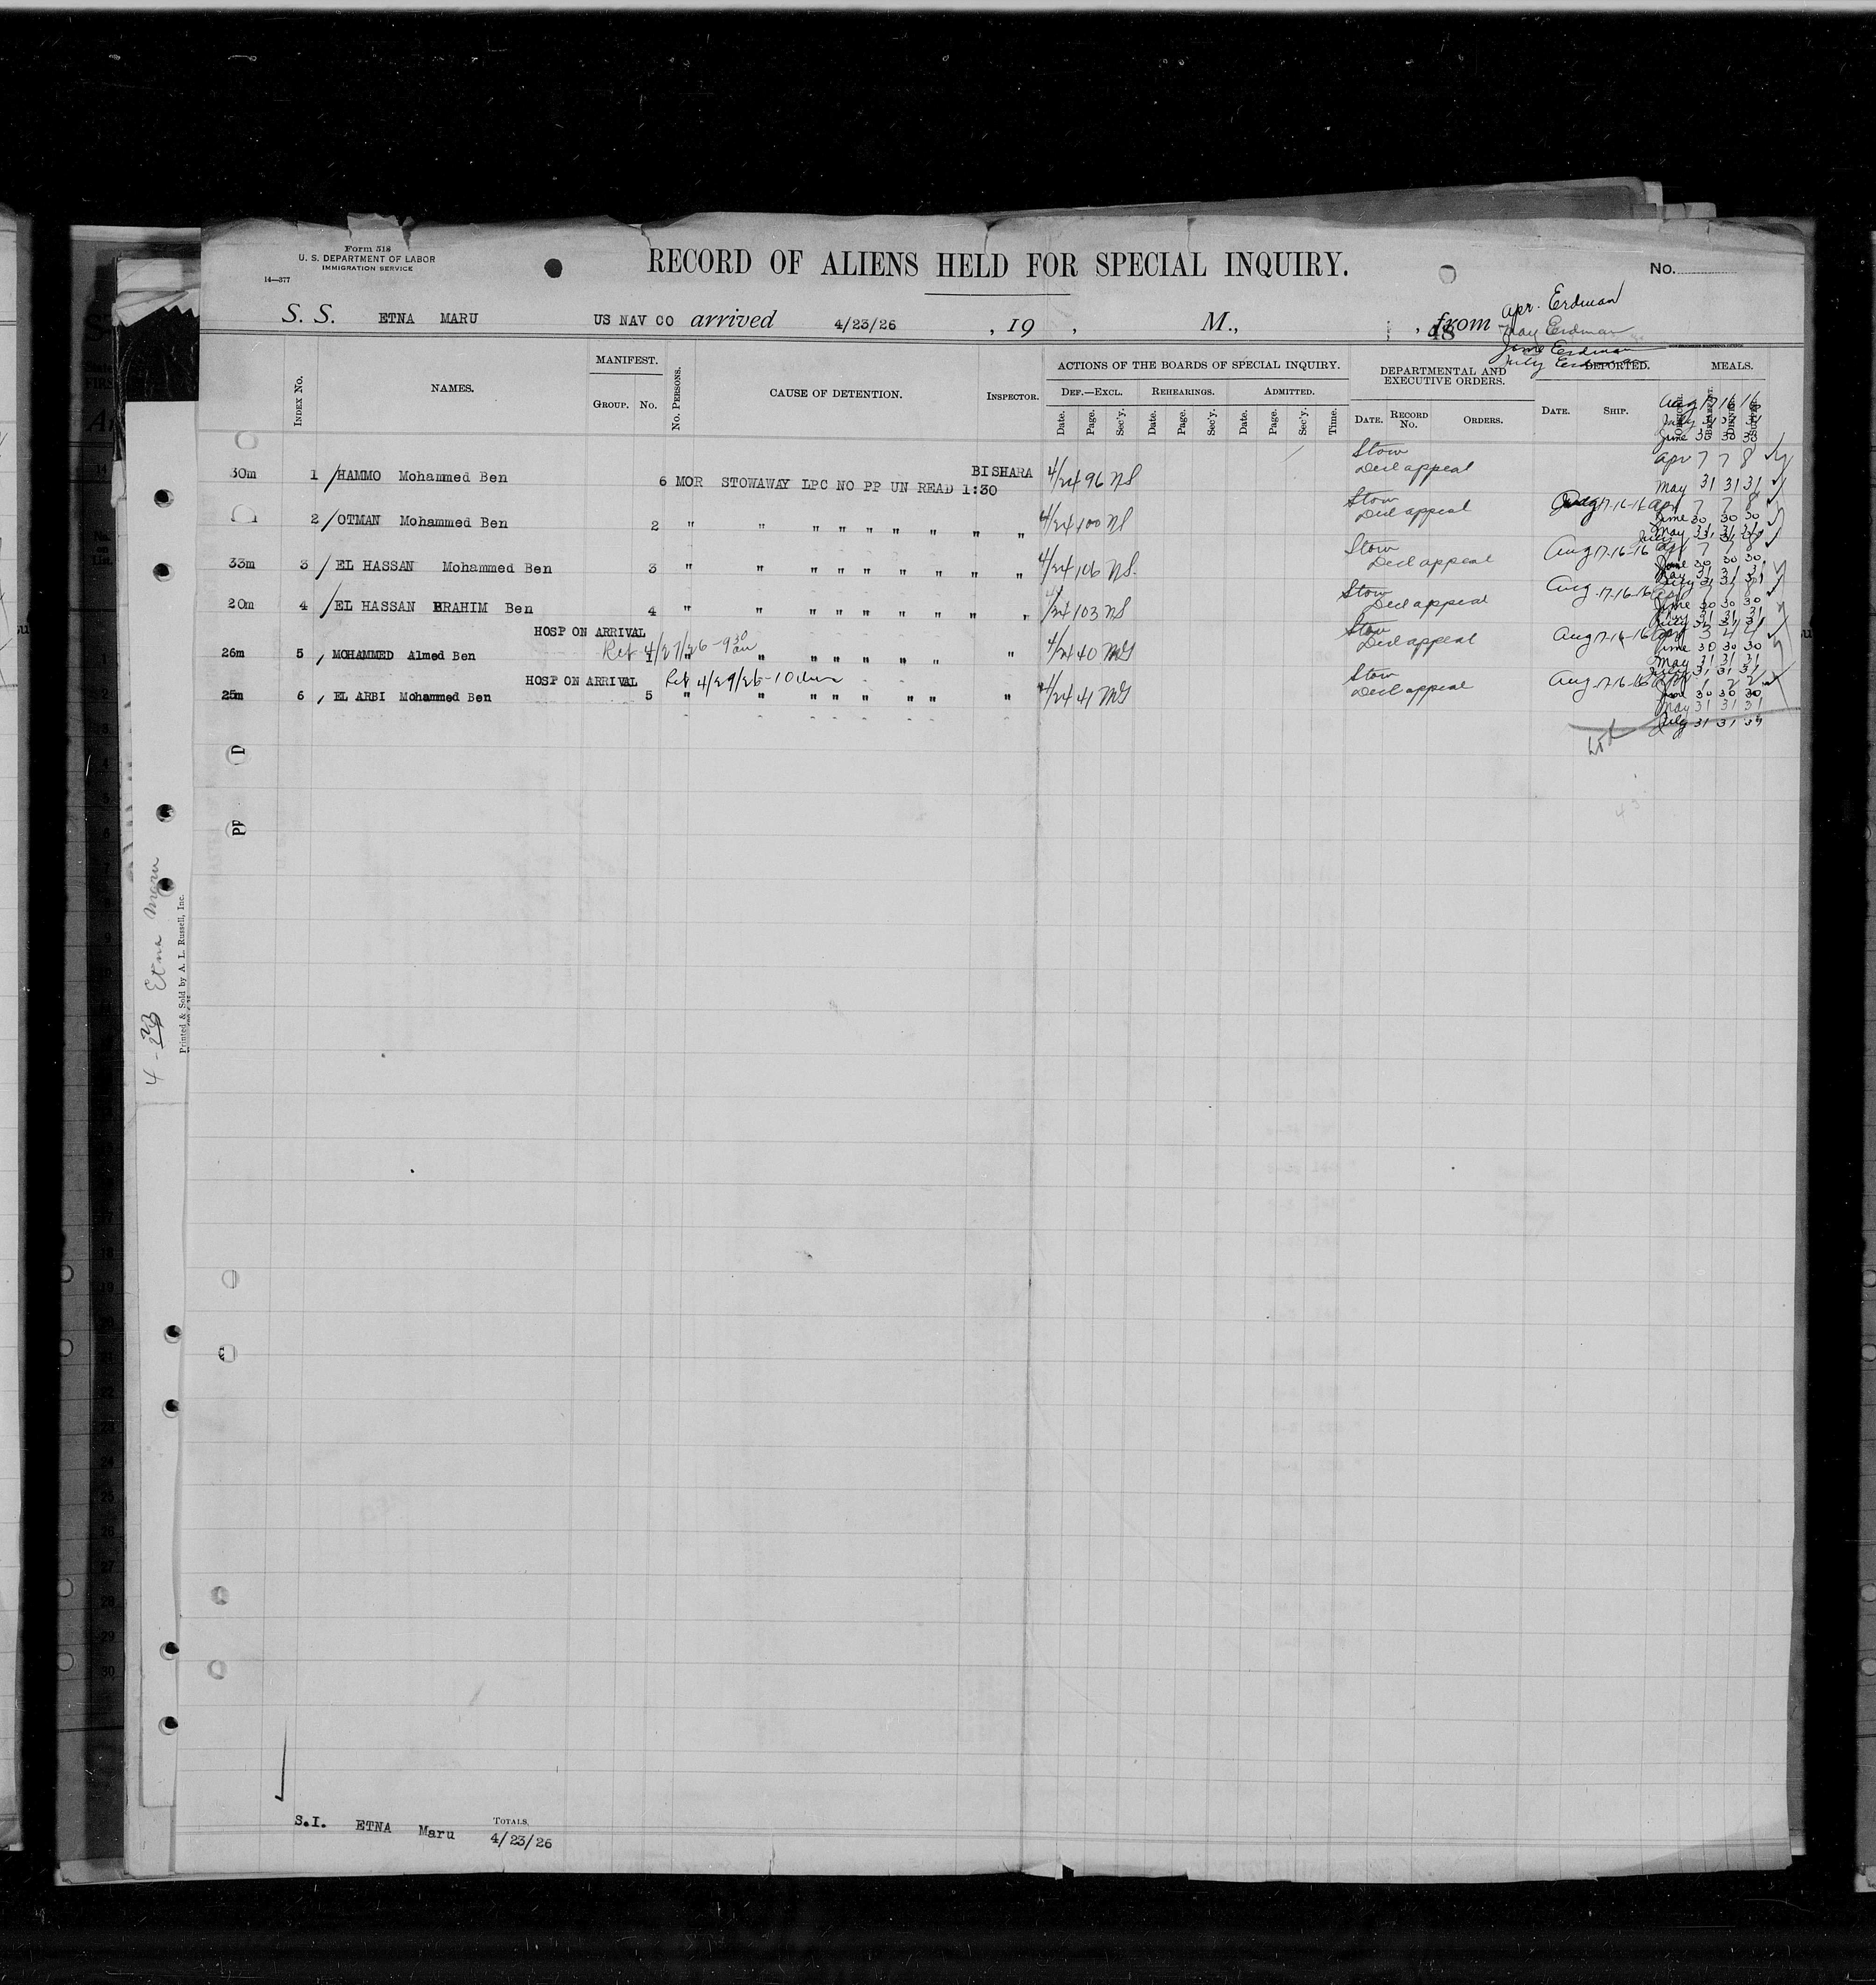 Form 518
U. S. DEPARTMENT OF LABOR
IMMIGRATION SERVICE
14—377
RECORD OF ALIENS HELD FOR SPECIAL INQUIRY.
No.
S. S. ETNA MARU US NAV CO arrived 4/23/26 , 19 , M., , from
48
Apr. Erdman
May Erdman
June Erdman
July Erdman
INDEX No.
NAMES.
MANIFEST.
GROUP. No.
No. PERSONS.
CAUSE OF DETENTION.
INSPECTOR.
ACTIONS OF THE BOARDS OF SPECIAL INQUIRY.
DEF.—EXCL. REHEARINGS. ADMITTED.
Date. Page. Sec'y. Date. Page. Sec'y. Date. Page. Sec'y. Time.
DEPARTMENTAL AND
EXECUTIVE ORDERS.
DATE. RECORD No. ORDERS.
DEPORTED.
DATE. SHIP.
MEALS.
Aug 17 16 16
July 31 31 31
June 30 30 30
30m 1 /HAMMO Mohammed Ben 6 MOR STOWAWAY LPC NO PP UN READ 1:30 BISHARA 4/24 96 NS Stow Decd appeal Apr 7 7 8
May 31 31 31
2 /OTMAN Mohammed Ben 2 " " " " " " " " " 4/24 100 NS Stow Decd appeal Aug 17-16-16 Apr 7 7 8
June 30 30 30
May 31 31 31
33m 3 / EL HASSAN Mohammed Ben 3 " " " " " " " " " 4/24 106 NS. Stow Decd appeal Aug 17-16-16 Apr 7 7 8
June 30 30 30
20m 4 /EL HASSAN BRAHIM Ben 4 " " " " " " " " " 4/24 103 NS Stow Decd appeal Aug 17-16-16 Apr 7 7 8
June 30 30 30
July 31 31 31
HOSP ON ARRIVAL
Ret 4/27/26 - 9 30 am
26m 5 , MOHAMMED Almed Ben 1 " " " " " " " 4/24 40 MG Stow Decd appeal Aug 17-16-16 Apr 3 4 4
June 30 30 30
May 31 31 31
July 31 31 31
HOSP ON ARRIVAL Ret 4/29/26 - 10
25m 6 , EL ARBI Mohammed Ben 5 " " " " " " " " 4/24 41 MG Stow Decd appeal Aug 17-16-16 Apr 1 2 2
June 30 30 30
May 31 31 31
July 31 31 31
D
PP
4 - 23 Etna Maru
Printed & Sold by A. L. Russell, Inc.
S.I. ETNA Maru TOTALS,
4/23/26